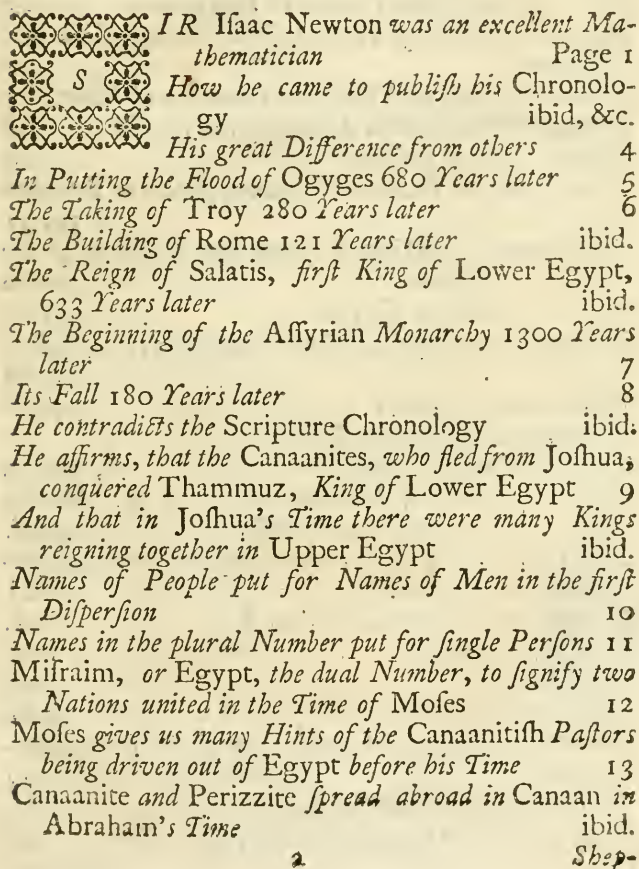 SIR Iſaac Newton was an excellent Ma-
thematician Page 1
How he came to publiſh his Chronolo-
gy ibid, &c.
His great Difference from others 4
In Putting the Flood of Ogyges 680 Years later 5
The Taking of Troy 280 Years later 6
The Building of Rome 121 Years later ibid.
The Reign of Salatis, firſt King of Lower Egypt,
633 Years later ibid.
The Beginning of the Aſſyrian Monarchy 1300 Years
later 7
Its Fall 180 Years later 8
He contradicts the Scripture Chronology ibid.
He affirms, that the Canaanites, who fled from Joſhua,
conquered Thammuz, King of Lower Egypt 9
And that in Joſhua's Time there were many Kings
reigning together in Upper Egypt ibid.
Names of People put for Names of Men in the firſt
Diſperſion 10
Names in the plural Number put for ſingle Perſons 11
Miſraim, or Egypt, the dual Number, to ſignify two
Nations united in the Time of Moſes 12
Moſes gives us many Hints of the Canaanitiſh Paſtors
being driven out of Egypt before his Time 13
Canaanite and Perizzite ſpread abroad in Canaan in
Abraham's Time ibid.
2 Shep-